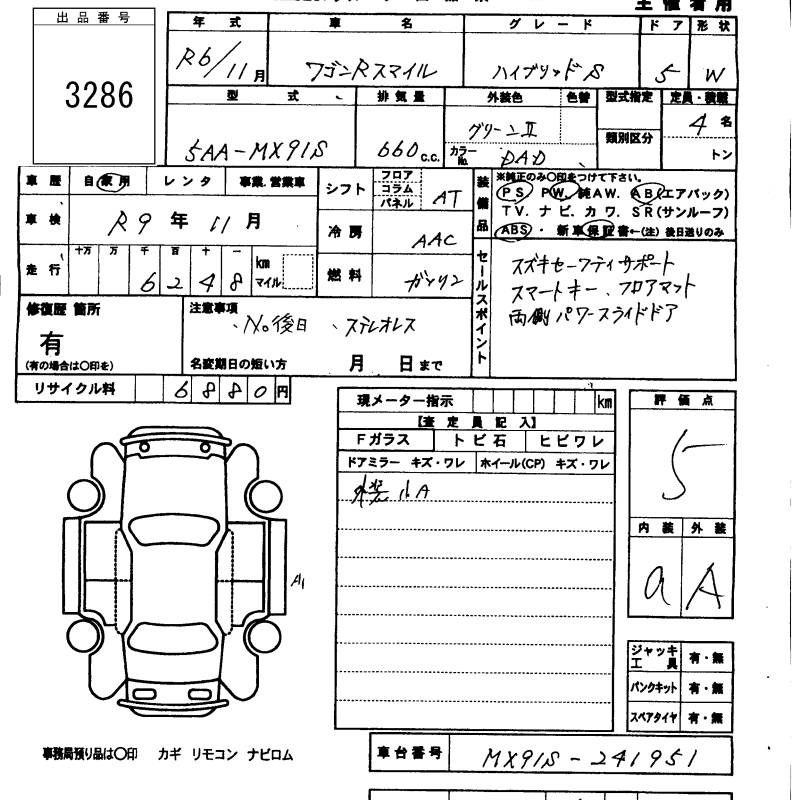 主催者用
出品番号
3286
年式 車名 グレード ドア 形状
R6/11月 ワゴンRスマイル ハイブリッドS 5 W
型式 排気量 外装色 色替 型式指定 定員・積載
5AA-MX91S 660c.c. グリーンⅡ 類別区分 4名
カラーNo. DAD トン
車歴 自家用 レンタ 事業.営業車
車検 R9年11月
走行 十万 万 千 百 十 一
6248 km マイル
シフト フロア コラム パネル AT
冷房 AAC
燃料 ガソリン
装備品
※純正のみ○印をつけて下さい。
PS PW. 純AW. AB(エアバック)
TV. ナビ. カワ. SR(サンルーフ)
ABS・新車保証書←(注)後日送りのみ
セールスポイント
スズキセーフティサポート
スマートキー、フロアマット
両側パワースライドドア
修復歴 箇所
有
(有の場合は○印を)
注意事項
、No後日 、ステレオレス
名変期日の短い方 月 日まで
リサイクル料 6880円
現メーター指示 km
【査定員記入】
Fガラス トビ石 ヒビワレ
ドアミラー キズ・ワレ ホイール(CP) キズ・ワレ
外装小A
評価点
5
内装 外装
a A
A1
ジャッキ工具 有・無
パンクキット 有・無
スペアタイヤ 有・無
事務局預り品は○印 カギ リモコン ナビロム
車台番号 MX91S-241951